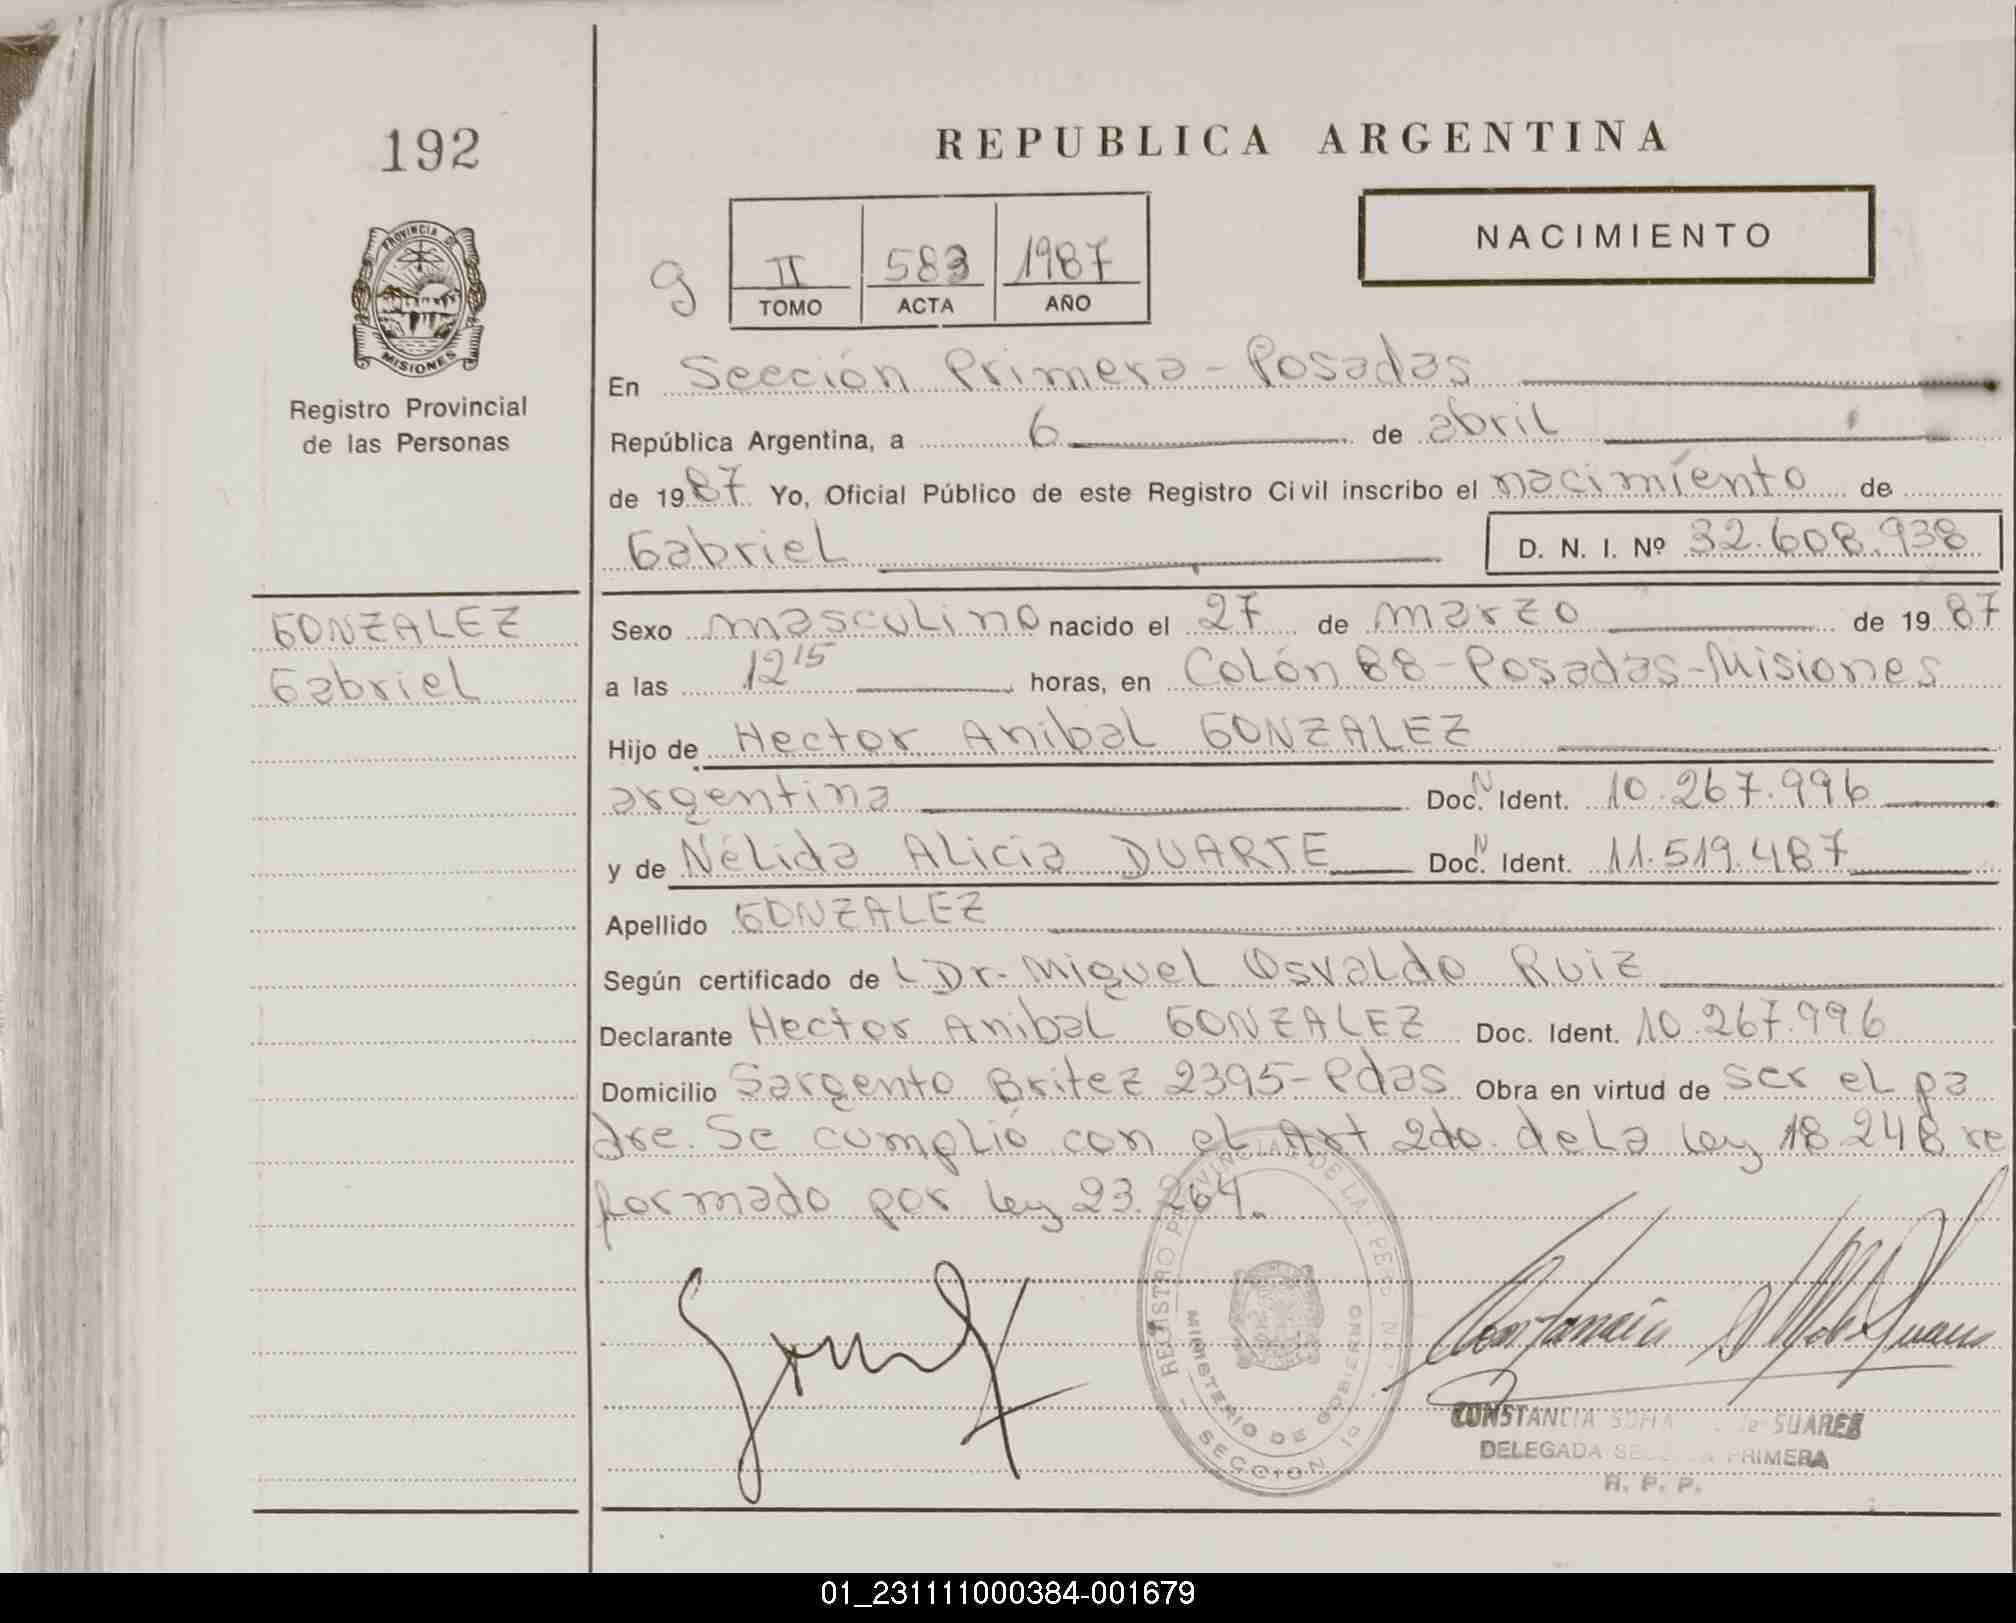 192
REPUBLICA ARGENTINA
NACIMIENTO
g
II 583 1987
TOMO ACTA AÑO
PROVINCIA DE
MISIONES
Registro Provincial
de las Personas
En Sección Primera - Posadas
República Argentina, a 6 de abril
de 1987 Yo, Oficial Público de este Registro Civil inscribo el nacimiento de
Gabriel D. N. I. Nº 32.608.938
GONZALEZ
Gabriel
Sexo masculino nacido el 27 de marzo de 1987
a las 12 15 horas, en Colón 88 - Posadas - Misiones
Hijo de Hector Anibal GONZALEZ
argentina Doc. N Ident. 10.267.996
y de Nélida Alicia DUARTE Doc. N Ident. 11.519.487
Apellido GONZALEZ
Según certificado de l Dr. Miguel Osvaldo Ruiz
Declarante Hector Anibal GONZALEZ Doc. Ident. 10.267.996
Domicilio Sargento Britez 2395 - Pdas Obra en virtud de ser el pa
dre. Se cumplió con el Art 2do. de la Ley 18.248 re
formado por Ley 23.264.
REGISTRO PROVINCIAL DE LAS PERS
MINISTERIO DE GOBIERNO
SECCION 1a
CONSTANCIA SOFIA de SUAREZ
DELEGADA SECCION PRIMERA
R. P. P.
01_231111000384-001679